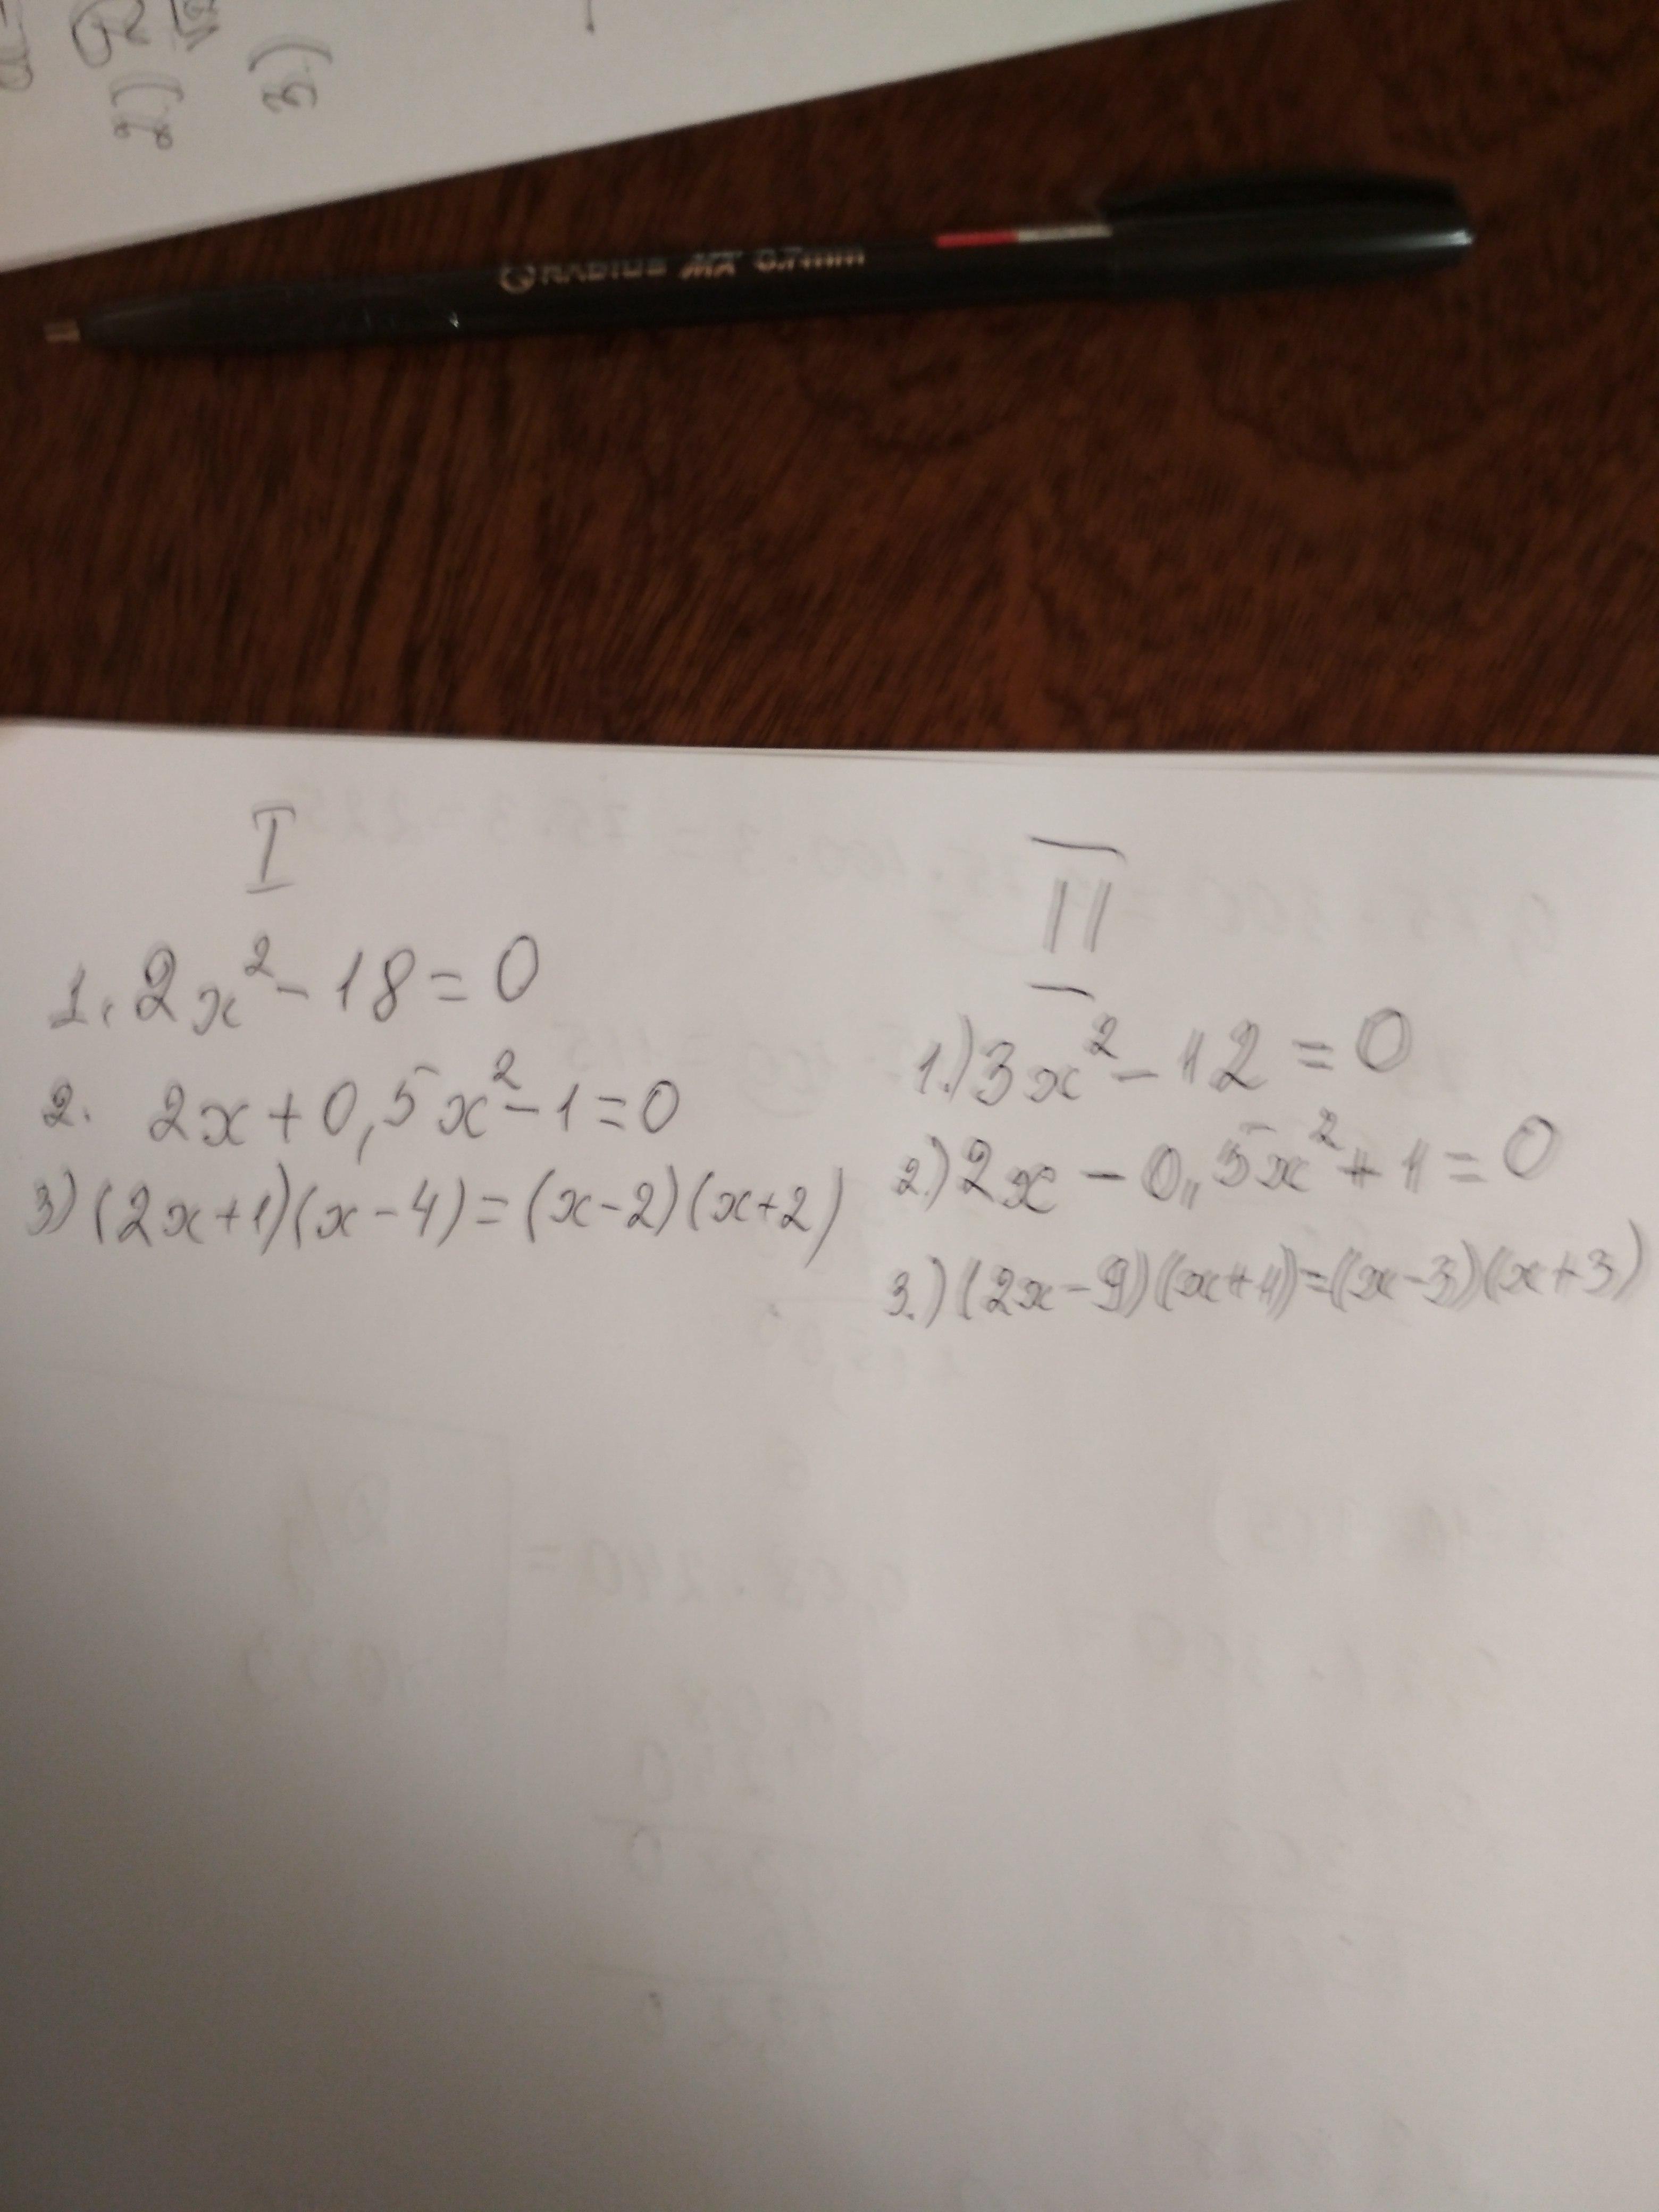 2.)
3.)
RADIUS MX 0.7mm
I
1. 2x² - 18 = 0
2. 2x + 0,5x² - 1 = 0
3) (2x + 1)(x - 4) = (x - 2)(x + 2)
II
1.) 3x² - 12 = 0
2.) 2x - 0,5x² + 1 = 0
3.) (2x - 9)(x + 1) = (x - 3)(x + 3)